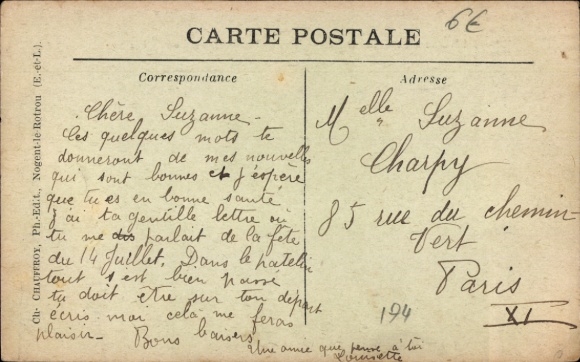 6€
CARTE POSTALE
Correspondance
Chère Suzanne -
Ces quelques mots te
donneront de mes nouvelles
qui sont bonnes et j'espère
que tu es en bonne santé
j'ai ta gentille lettre où
tu me dis parlait de la fête
du 14 Juillet. Dans le patelin
tout s'est bien passé
tu doit être sur ton départ
écris moi cela me feras
plaisir - Bons baisers
Une amie que pense à toi
Adresse
Melle Suzanne
Charpy
85 rue du chemin-
Vert
Paris
XI
194
Ch. CHAUFFROY, Ph.-Edit., Nogent-le-Rotrou (E.-et-L.)